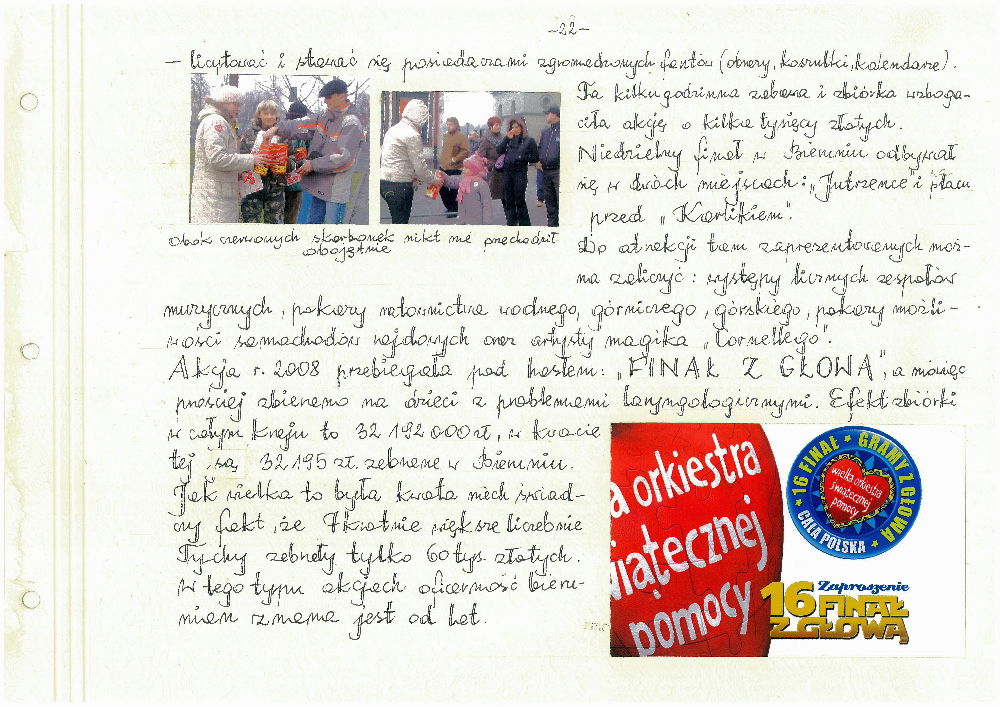 -22-
- licytować i stawać się posiadaczami zgromadzonych fantów (obrazy, koszulki, kalendarze).
Ta kilkugodzinna zabawa i zbiórka wzboga-
ciła akcję o kilka tysięcy złotych.
Niedzielny finał w Bieruniu odbywał
się w dwóch miejscach: „Jutrzence" i placu
przed „Karlikiem".
Obok czerwonych skarbonek nikt nie przechodził
obojętnie
Do atrakcji tam zaprezentowanych moż-
na zaliczyć: występy licznych zespołów
muzycznych, pokazy ratownictwa wodnego, górniczego, górskiego, pokazy możli-
wości samochodów rajdowych oraz artysty magika „Cornellego".
Akcja r. 2008 przebiegała pod hasłem: „FINAŁ Z GŁOWĄ", a mówiąc
prościej zbierano na dzieci z problemami laryngologicznymi. Efekt zbiórki
w całym kraju to 32 192 000 zł, w kwocie
tej są 32 195 zł. zebrane w Bieruniu.
Jak wielka to była kwota niech świad-
czy fakt, że 7krotnie większe liczebnie
Tychy zebrały tylko 60 tys. złotych.
W tego typu akcjach ofiarność bieru-
nian znana jest od lat.
a orkiestra
wiątecznej
pomocy
16 FINAŁ ★ GRAMY Z GŁOWĄ
CAŁA POLSKA
wielka orkiestra
świątecznej
pomocy
Zaproszenie
16 FINAŁ
Z GŁOWĄ